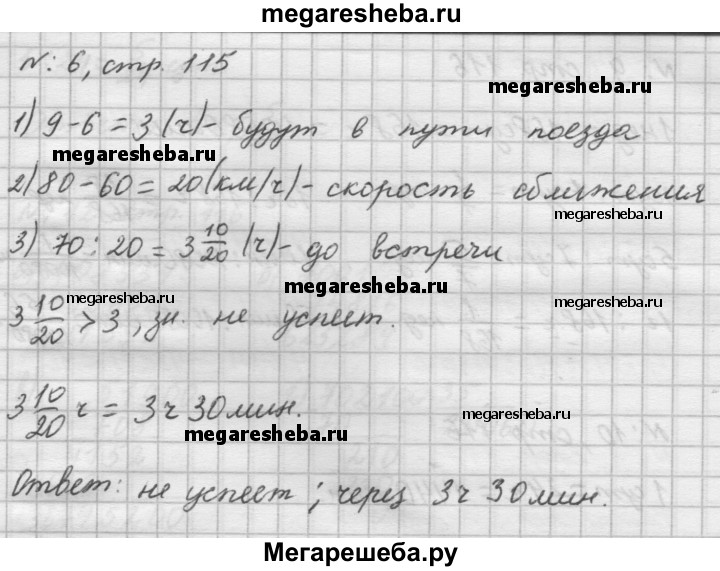 megaresheba.ru
№: 6, стр. 115
megaresheba.ru
1) 9 - 6 = 3 (ч) - будут в пути поезда
megaresheba.ru
2) 80 - 60 = 20 (км/ч) - скорость сближения
megaresheba.ru
3) 70 : 20 = 3 10/20 (ч) - до встречи
megaresheba.ru
megaresheba.ru
megaresheba.ru
3 10/20 > 3, зн. не успеет.
3 10/20 ч = 3 ч 30 мин.
megaresheba.ru
megaresheba.ru
Ответ: не успеет; через 3 ч 30 мин.
Мегарешеба.ру